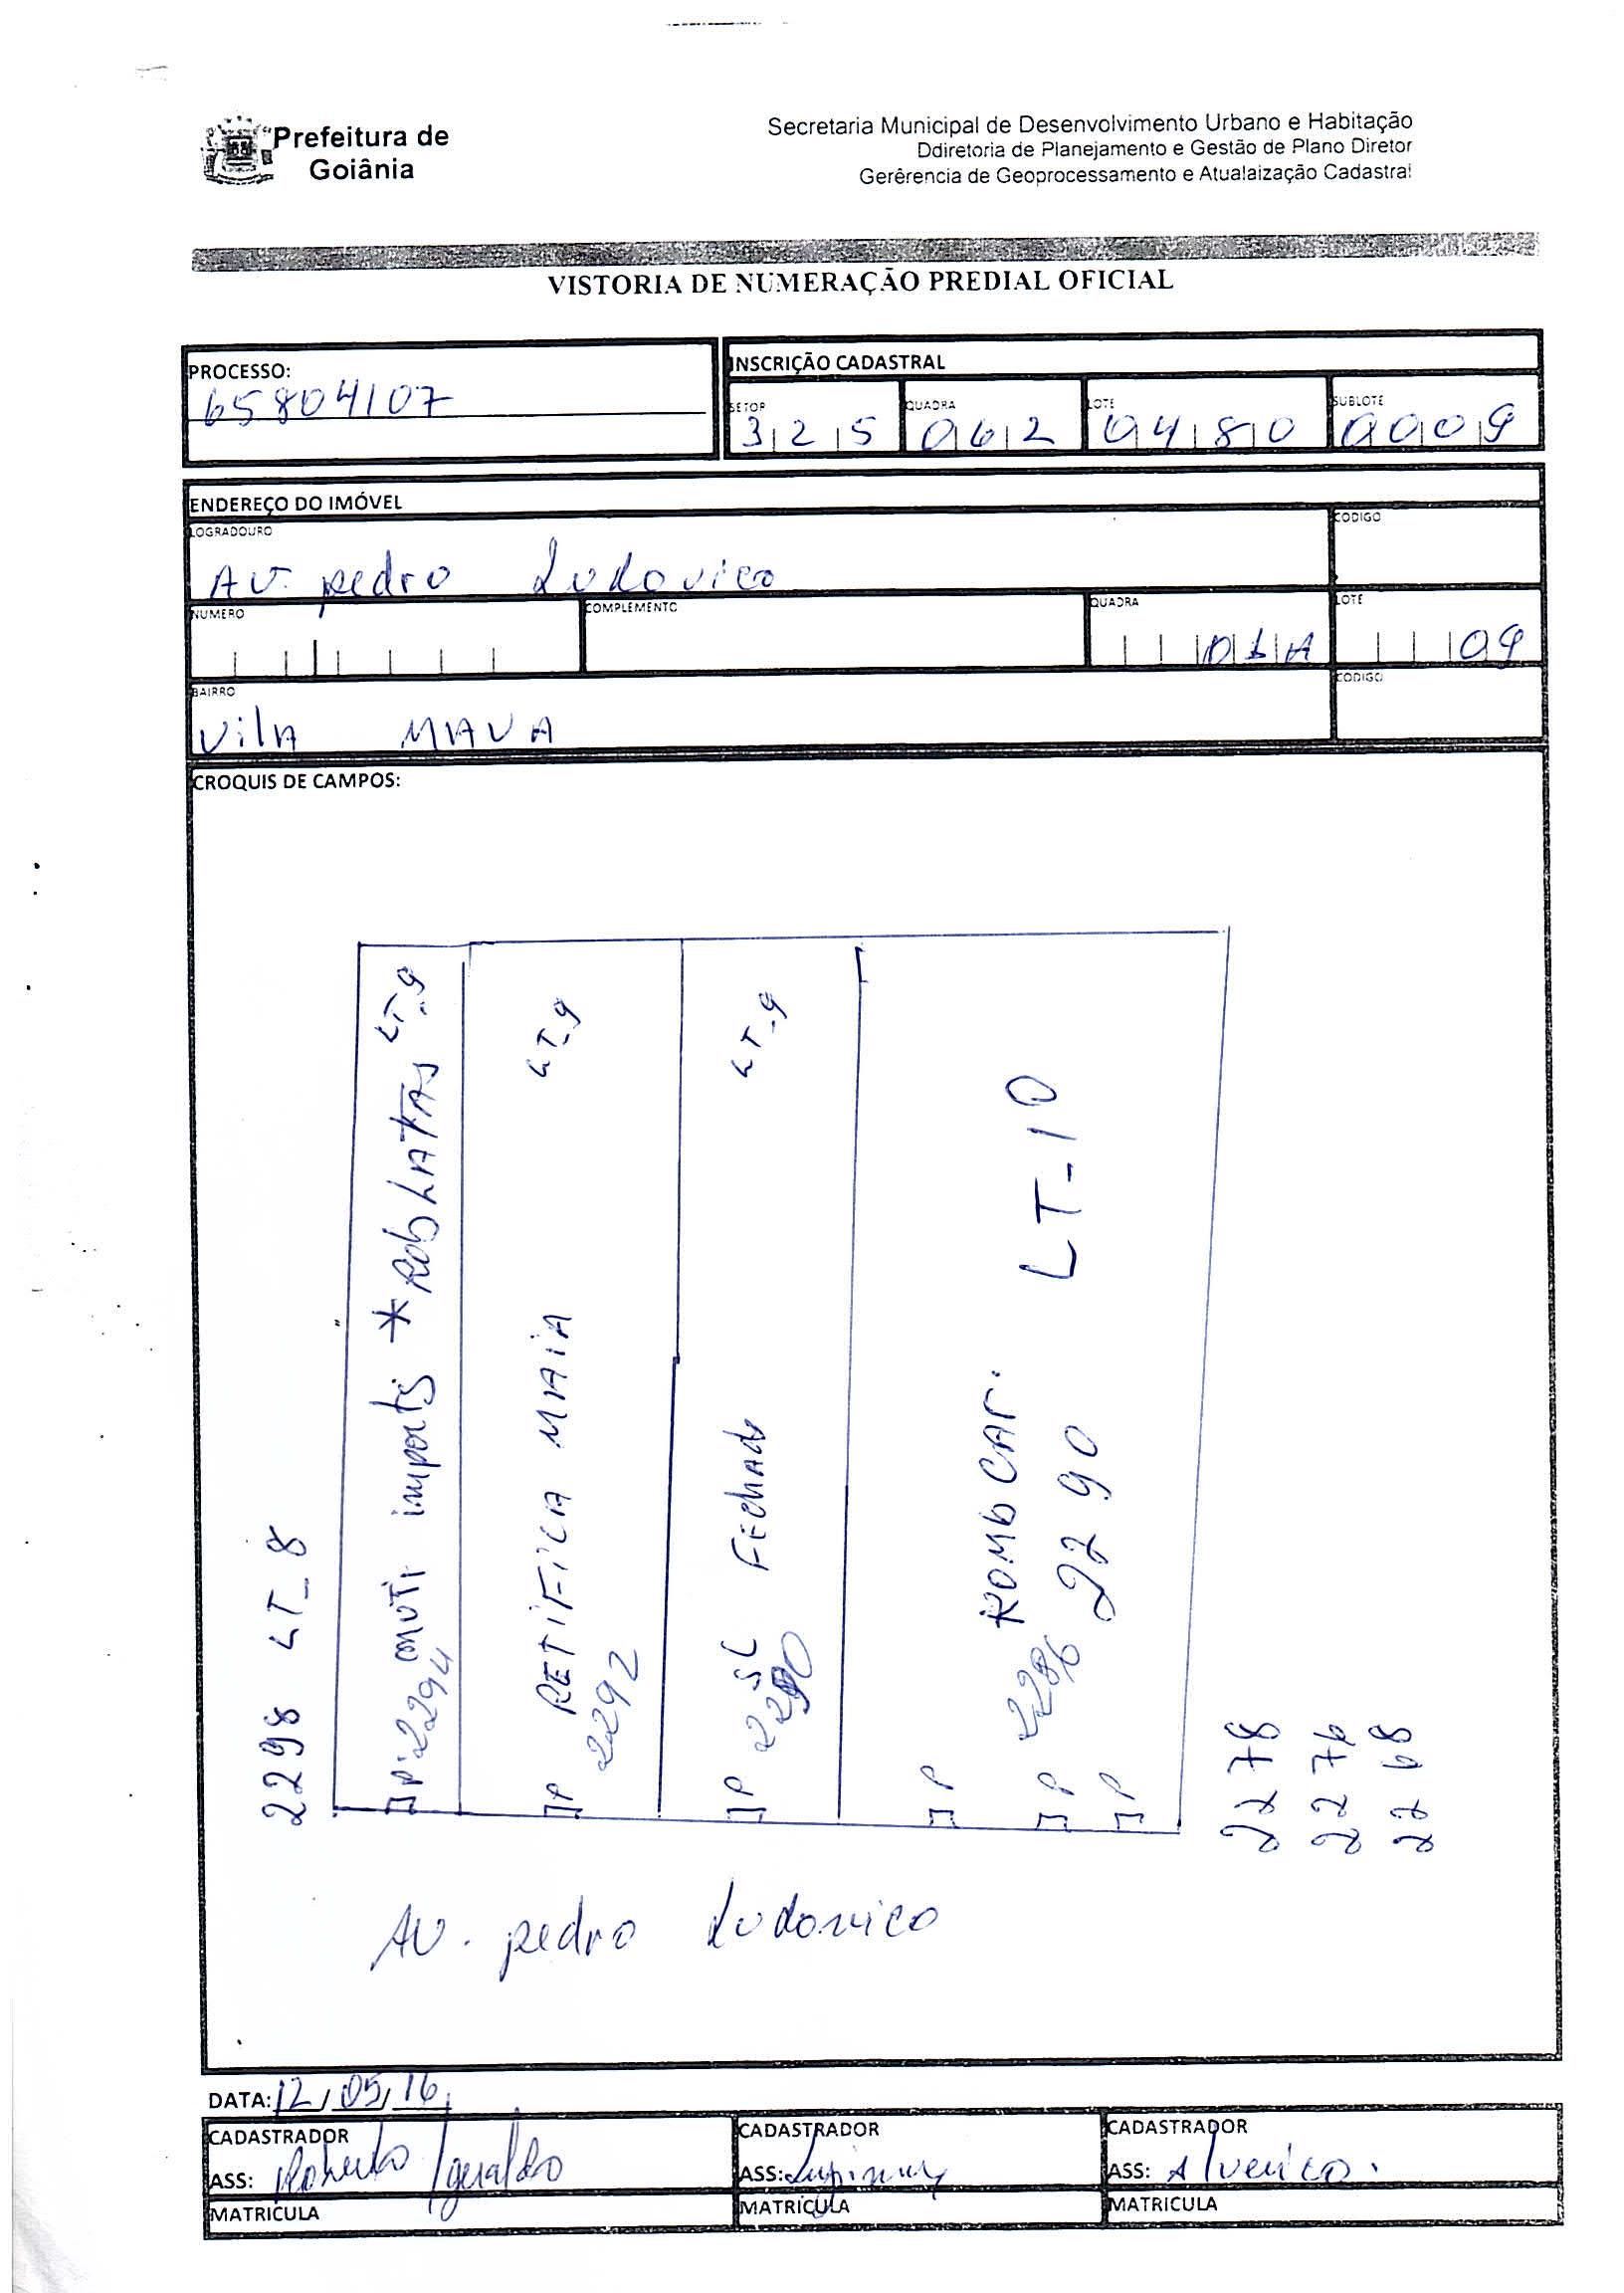 Prefeitura de
Goiânia
Secretaria Municipal de Desenvolvimento Urbano e Habitação
Ddiretoria de Planejamento e Gestão de Plano Diretor
Gerêrencia de Geoprocessamento e Atualaização Cadastral
VISTORIA DE NUMERAÇÃO PREDIAL OFICIAL
PROCESSO:
65804107
INSCRIÇÃO CADASTRAL
SETOR QUADRA LOTE SUBLOTE
325 062 0480 0009
ENDEREÇO DO IMÓVEL
LOGRADOURO CODIGO
AV. pedro Ludovico
NUMERO COMPLEMENTO QUADRA LOTE
01A 09
BAIRRO CODIGO
Vila MAUA
CROQUIS DE CAMPOS:
2298 LT_8
P 2294 imports * LATAS LT_9
P RETIFICA MAIA LT_9
2292
P SL Fechado LT_9
2290
P P P
ROMB CAR. LT-10
2286 2290
2278
2276
2268
AV. pedro Ludovico
DATA: 12/05/16
CADASTRADOR CADASTRADOR CADASTRADOR
ASS: Roberto /geraldo ASS: ASS:
MATRICULA MATRÍCULA MATRICULA